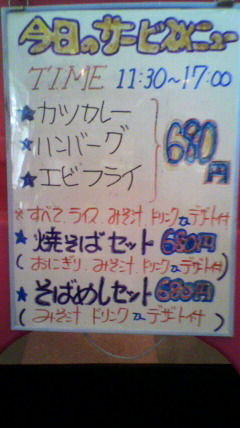 今日のサービスメニュー
TIME 11:30~17:00
★カツカレー
★ハンバーグ
★エビフライ
680円
※すべて、ライス、みそ汁、ドリンク or デザート付
★焼そばセット 680円
(おにぎり、みそ汁、ドリンク or デザート付)
★そばめしセット 680円
(みそ汁、ドリンク or デザート付)